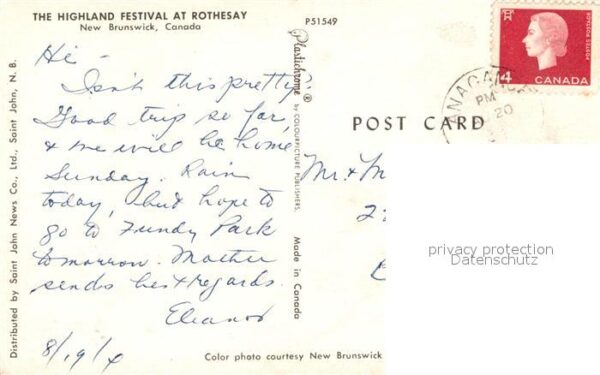 THE HIGHLAND FESTIVAL AT ROTHESAY
New Brunswick, Canada
P51549
Hi -
Isn't this pretty?
Good trip so far,
& we will be home
Sunday. Rain
today, but hope to
go to Fundy Park
tomorrow. Mother
sends best regards.
Eleanor
8/19/
Distributed by Saint John News Co., Ltd., Saint John, N. B.
Plastichrome ®
by COLOURPICTURE PUBLISHERS.
Made in Canada
Color photo courtesy New Brunswick
POST CARD
4
CANADA
POSTES POSTAGE
PM
20
Mr. & M
privacy protection
Datenschutz